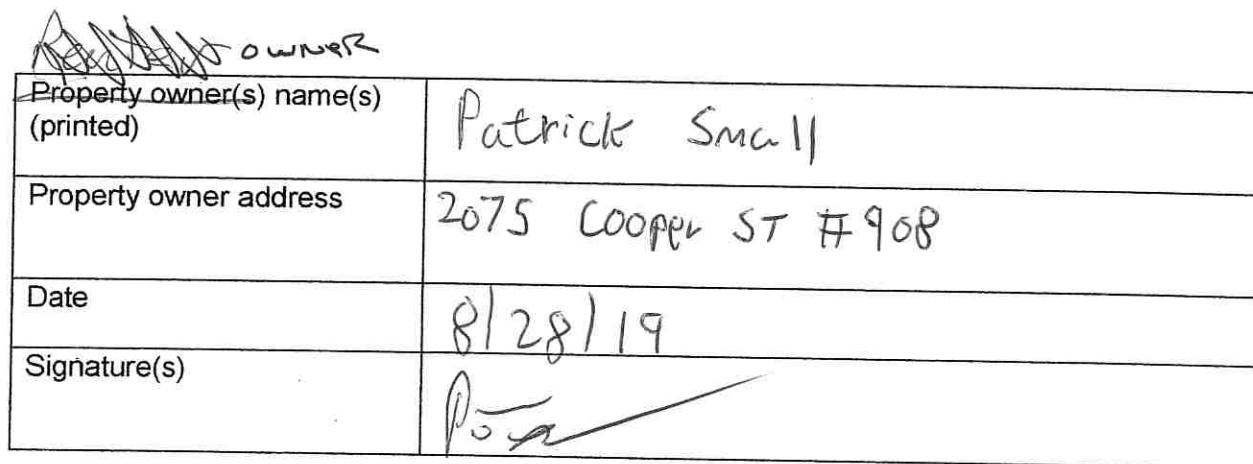 OWNER
Property owner(s) name(s)
(printed)
Patrick Small
Property owner address
2075 Cooper ST #908
Date
8/28/19
Signature(s)